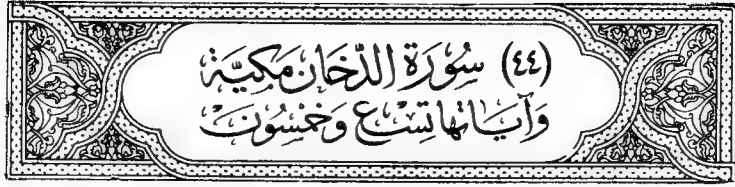 (٤٤) سُورَة الدّخَان مَكيَّة
وَآيَاتها تِسْع وَخَمْسُونَ